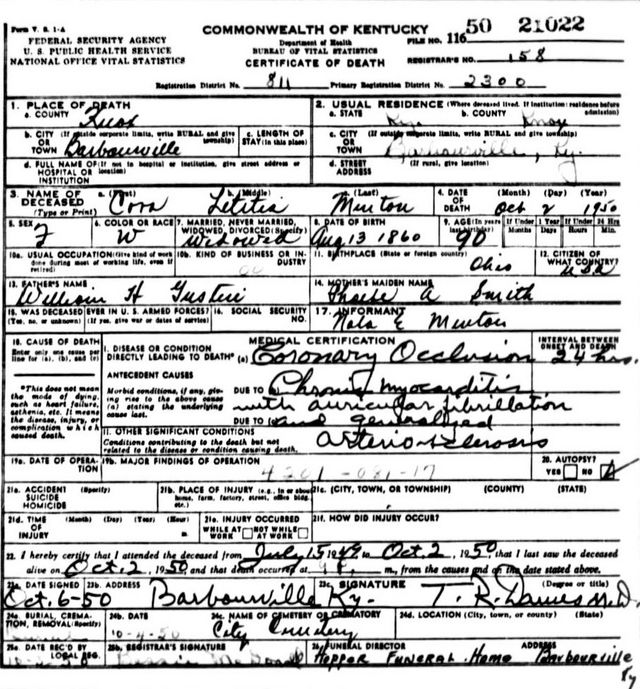 Form V. S. 1-A
FEDERAL SECURITY AGENCY
U. S. PUBLIC HEALTH SERVICE
NATIONAL OFFICE VITAL STATISTICS
COMMONWEALTH OF KENTUCKY
Department of Health
BUREAU OF VITAL STATISTICS
CERTIFICATE OF DEATH
FILE NO. 116 50 21022
REGISTRAR'S NO. 158
Registration District No. 811 Primary Registration District No. 2300
1. PLACE OF DEATH
a. COUNTY Knox
b. CITY (If outside corporate limits, write RURAL and give township)
OR TOWN Barbourville
c. LENGTH OF STAY (in this place)
d. FULL NAME OF (If not in hospital or institution, give street address or location)
HOSPITAL OR INSTITUTION
2. USUAL RESIDENCE (Where deceased lived. If institution: residence before admission)
a. STATE Ky. b. COUNTY Knox
c. CITY (If outside corporate limits, write RURAL and give township)
OR TOWN Barbourville, Ky.
d. STREET ADDRESS (If rural, give location)
3. NAME OF DECEASED (Type or Print)
a. (First) Cora b. (Middle) Letitia (Last) Minton
4. DATE OF DEATH (Month) (Day) (Year) Oct 2 1950
5. SEX F
6. COLOR OR RACE W
7. MARRIED, NEVER MARRIED, WIDOWED, DIVORCED (Specify) Widowed
8. DATE OF BIRTH Aug 13 1860
9. AGE (In years last birthday) 90
If Under 1 Year Months Days
If Under 24 Hrs Hours Min.
10a. USUAL OCCUPATION (Give kind of work done during most of working life, even if retired)
10b. KIND OF BUSINESS OR INDUSTRY
11. BIRTHPLACE (State or foreign country) Ohio
12. CITIZEN OF WHAT COUNTRY? USA
13. FATHER'S NAME William H Gustin
14. MOTHER'S MAIDEN NAME Phoebe A Smith
15. WAS DECEASED EVER IN U. S. ARMED FORCES?
(Yes, no, or unknown) (If yes, give war or dates of service)
16. SOCIAL SECURITY NO.
17. INFORMANT Nola E Minton
18. CAUSE OF DEATH
Enter only one cause per line for (a), (b), and (c)
*This does not mean the mode of dying, such as heart failure, asthenia, etc. It means the disease, injury, or complication which caused death.
MEDICAL CERTIFICATION
INTERVAL BETWEEN ONSET AND DEATH
I. DISEASE OR CONDITION
DIRECTLY LEADING TO DEATH* (a) Coronary Occlusion 24 hrs.
ANTECEDENT CAUSES
Morbid conditions, if any, giving rise to the above cause (a) stating the underlying cause last.
DUE TO Chronic myocarditis
with auricular fibrillation
DUE TO and generalized
arterio-sclerosis
II. OTHER SIGNIFICANT CONDITIONS
Conditions contributing to the death but not related to the disease or condition causing death.
19a. DATE OF OPERATION
19b. MAJOR FINDINGS OF OPERATION
4201-081-17
20. AUTOPSY?
YES NO
21a. ACCIDENT (Specify)
SUICIDE
HOMICIDE
21b. PLACE OF INJURY (e.g., in or about home, farm, factory, street, office bldg., etc.)
21c. (CITY, TOWN, OR TOWNSHIP) (COUNTY) (STATE)
21d. TIME OF INJURY (Month) (Day) (Year) (Hour) m
21e. INJURY OCCURRED
WHILE AT WORK NOT WHILE AT WORK
21f. HOW DID INJURY OCCUR?
22. I hereby certify that I attended the deceased from July 15 1949 to Oct. 2, 1950 that I last saw the deceased
alive on Oct. 2, 1950, and that death occurred at m., from the causes and on the date stated above.
23a. DATE SIGNED Oct. 6-50
23b. ADDRESS Barbourville Ky.
23c. SIGNATURE (Degree or title) T. R. Davies M.D.
24a. BURIAL, CREMATION, REMOVAL (Specify)
24b. DATE 10-4-50
24c. NAME OF CEMETERY OR CREMATORY City Cemetery
24d. LOCATION (City, town, or county) (State)
25a. DATE REC'D BY LOCAL REG.
25b. REGISTRAR'S SIGNATURE
26. FUNERAL DIRECTOR ADDRESS
Hopper Funeral Home Barbourville
Ky